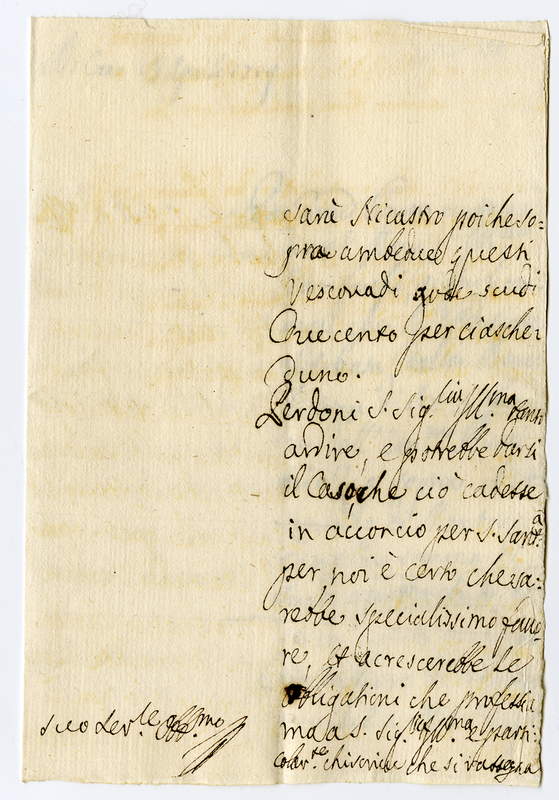 sarà Nicastro poiche so=
pra ambedue questi
Vescovadi gode scudi
Duecento per ciasche
duno.
Perdoni S. Sig. Ill.ma tant
ardire, e potrebbe darsi
il Caso, che ciò cadesse
in acconcio per S. Sant.à
per noi è certo che sa=
rebbe specialissimo favo
re, et acrescerebbe le
obligationi che professia
mo a S. Sig. Ill.ma e parti=
colar.te chi scrive che si rassegna
suo dev.te Obb.mo